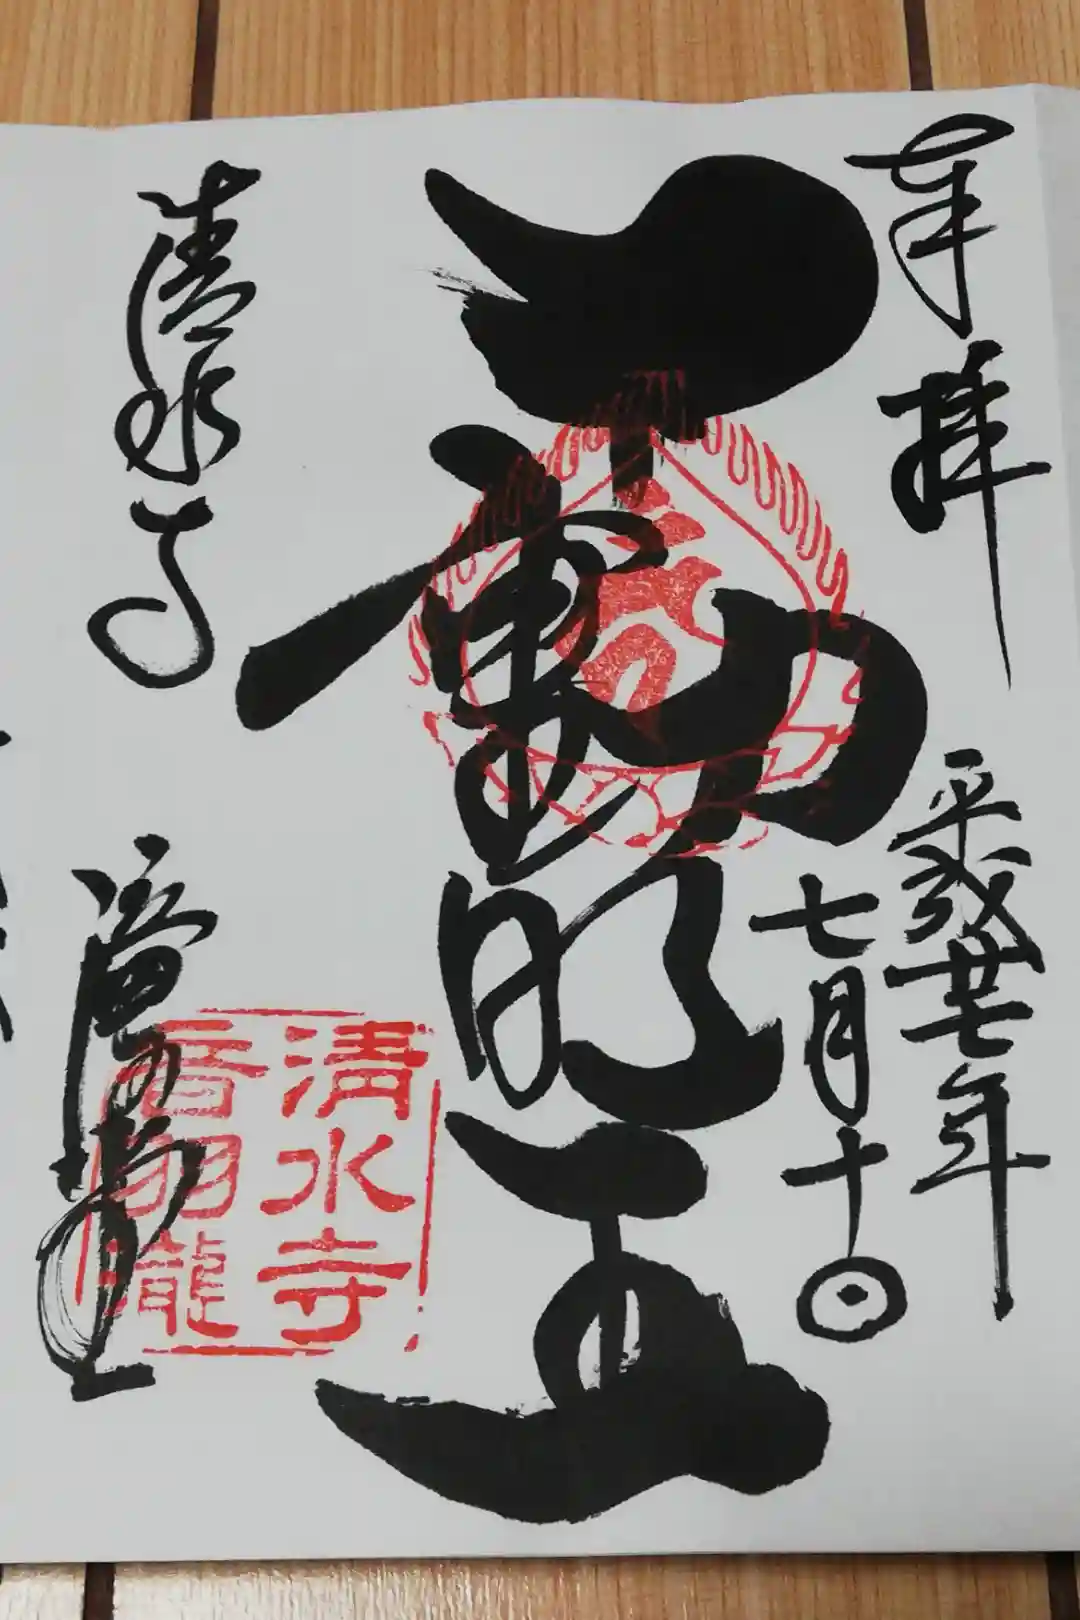 奉拝
平成廿七年
七月十日
不動明王
清水寺
清水寺
音羽瀧